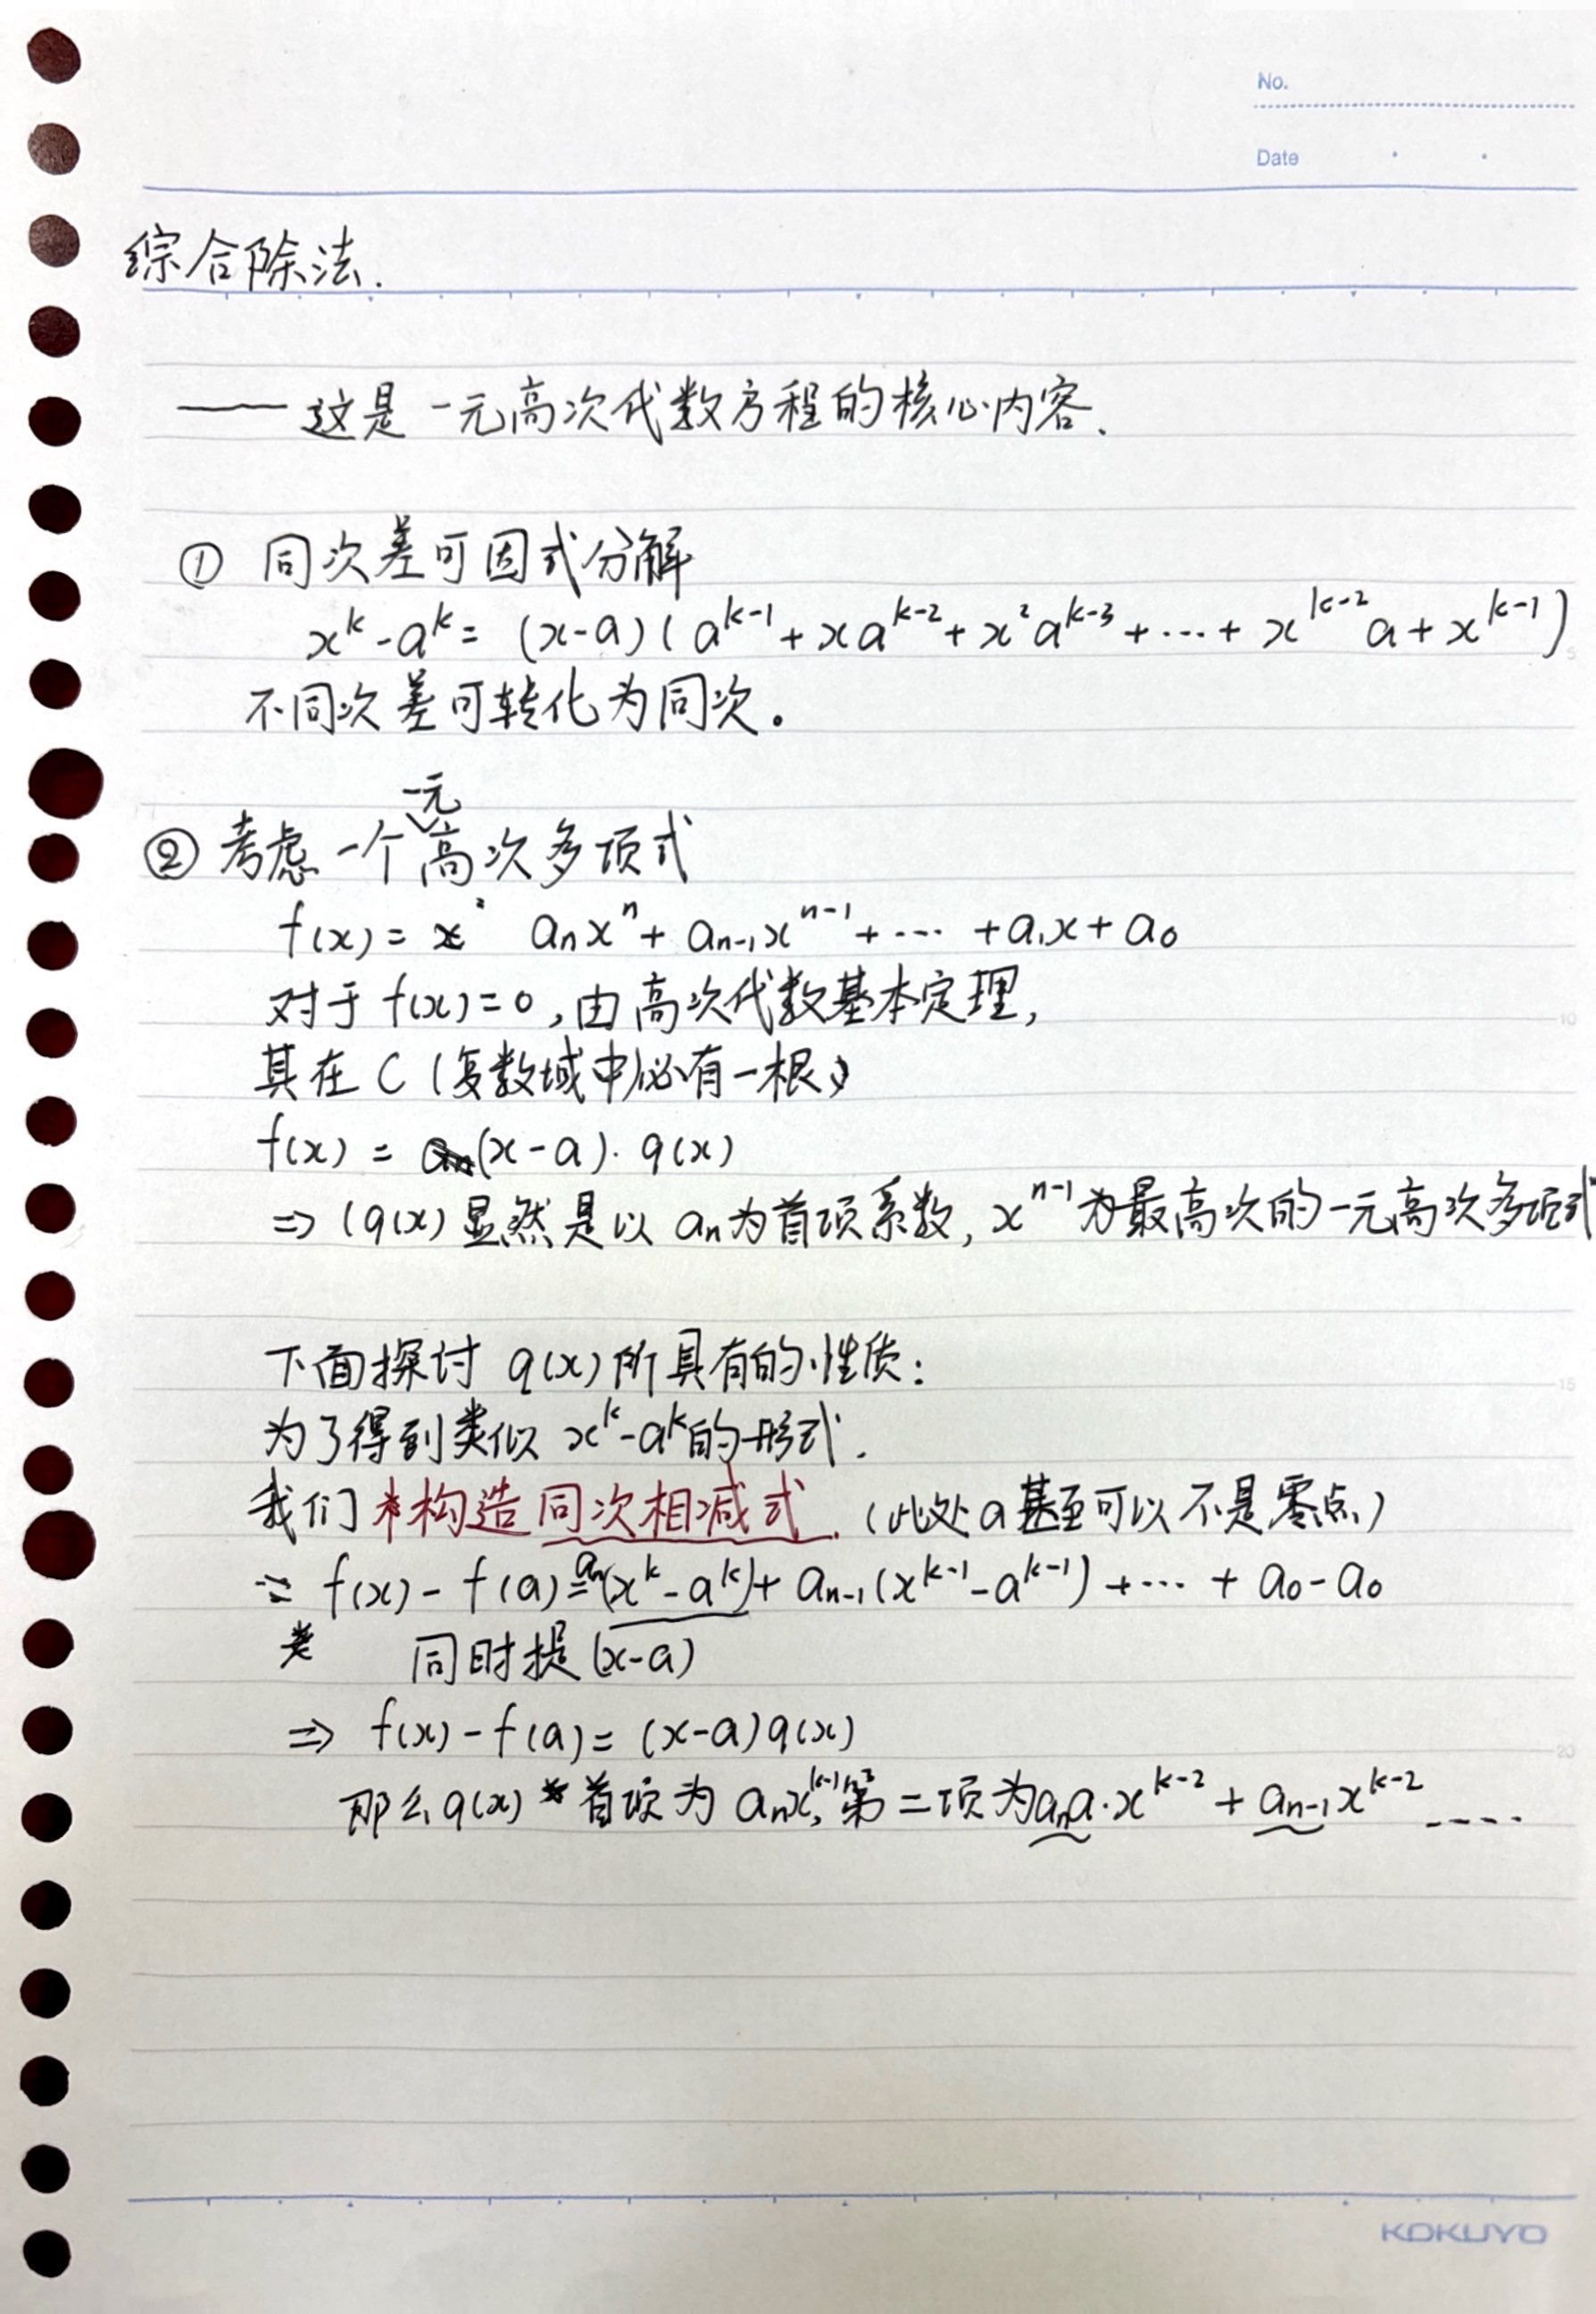 No.
Date
综合除法.
——这是一元高次代数方程的核心内容.
① 同次差可因式分解
x^k-a^k= (x-a)(a^{k-1}+xa^{k-2}+x²a^{k-3}+⋯+x^{k-2}a+x^{k-1})
不同次差可转化为同次。
② 考虑一个一元高次多项式
f(x)= a_nx^n+a_{n-1}x^{n-1}+⋯+a_1x+a_0
对于f(x)=0,由高次代数基本定理,
其在C(复数域中)必有一根,
f(x)=(x-a)·q(x)
⇒(q(x)显然是以a_n为首项系数,x^{n-1}为最高次的一元高次多项式
5
10
下面探讨q(x)所具有的性质:
15
为了得到类似x^k-a^k的形式.
我们构造同次相减式.(此处a甚至可以不是零点)
f(x)-f(a)=a_n(x^k-a^k)+a_{n-1}(x^{k-1}-a^{k-1})+⋯+a_0-a_0
同时提(x-a)
⇒ f(x)-f(a)=(x-a)q(x)
20
那么q(x)首项为a_nx^{k-1},第二项为a_na·x^{k-2}+a_{n-1}x^{k-2}----
KOKUYO